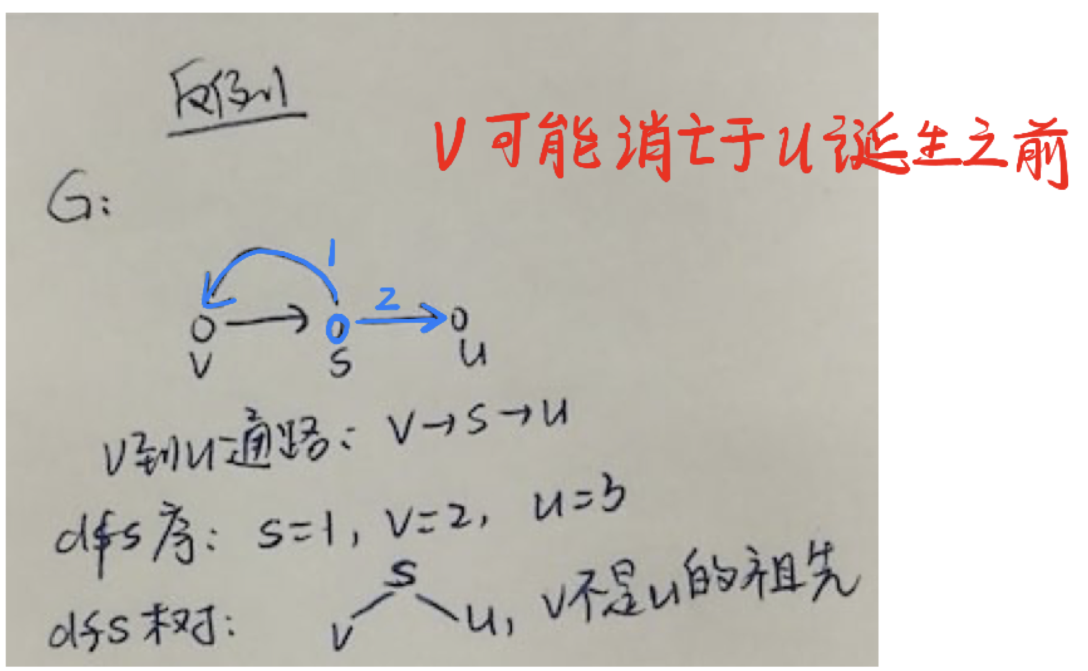 反例
V可能消亡于u诞生之前
G:
1
2
V
S
u
V到u通路: V→S→u
dfs序: S=1, V=2, u=3
dfs树:
S
V
u, V不是u的祖先